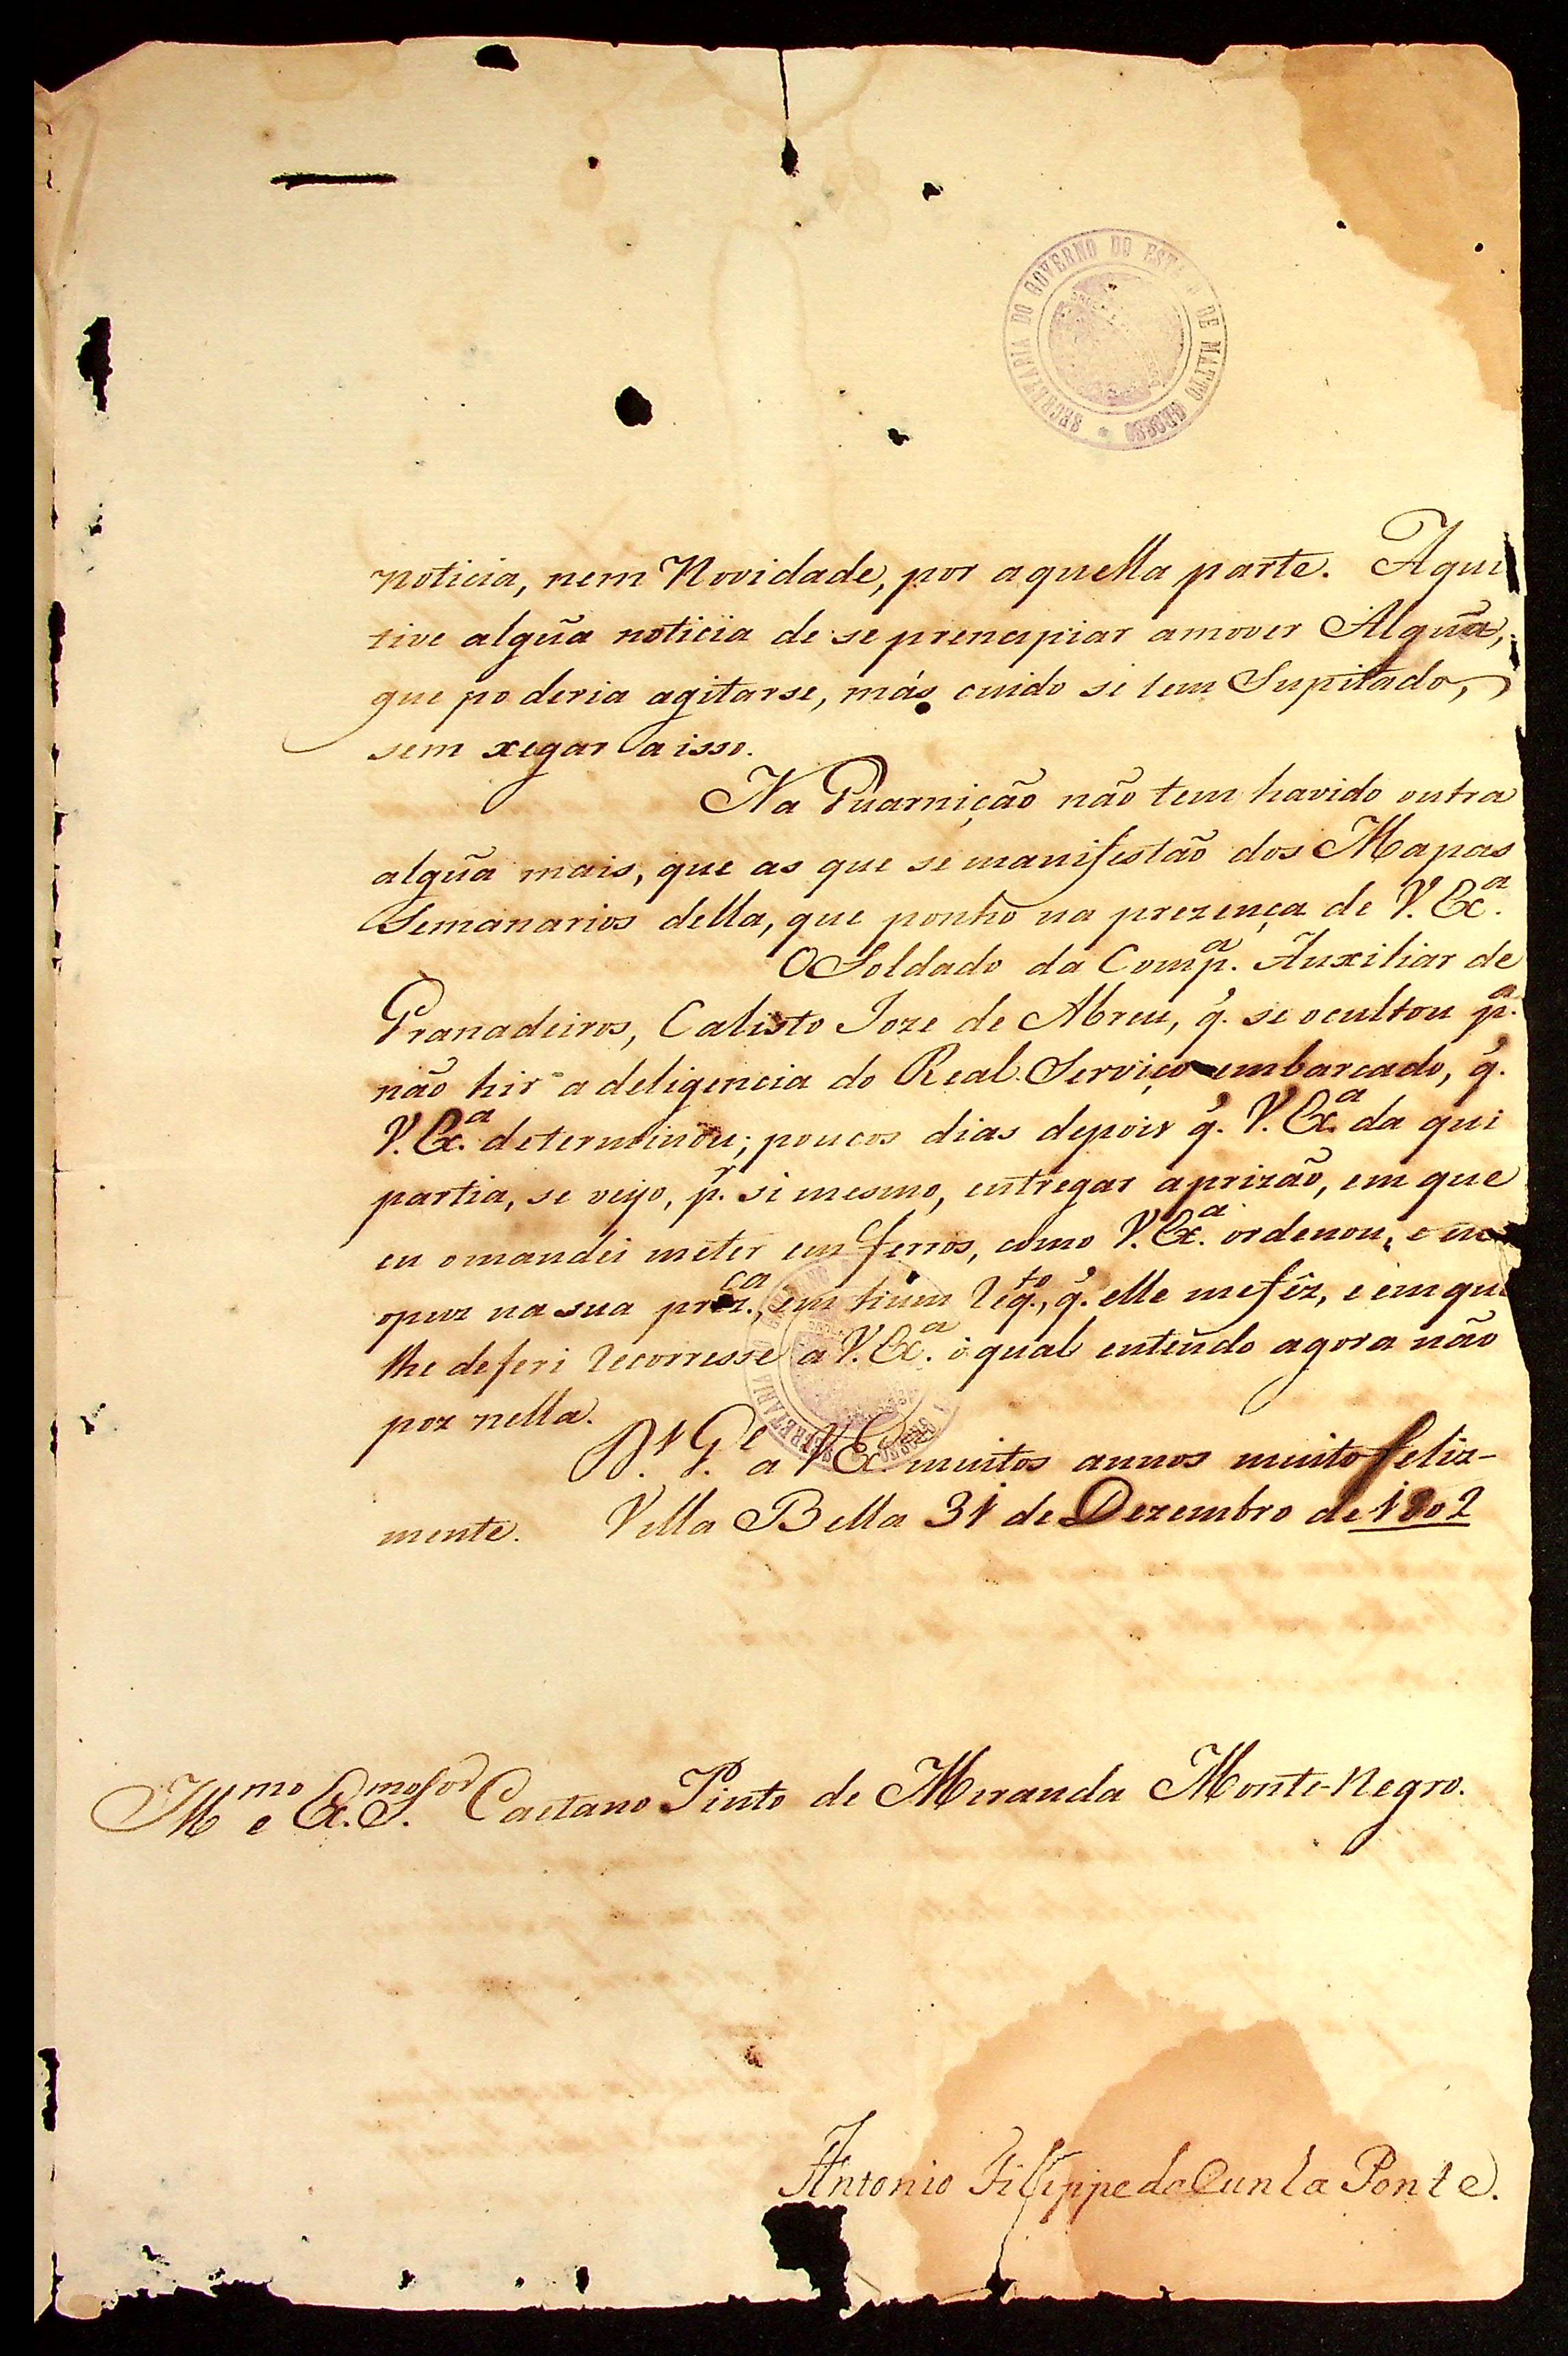 SECRETARIA DO GOVERNO DO ESTADO DE MATTO GROSSO *
noticia, nem Novidade, por aquella parte. Aqui
tive algũa noticia de se prencipiar amover Algũa,
que poderia agitarse, más cuido si tem Supitado,
sem xegar a isso.
Na Guarnição não tem havido outra
algũa mais, que as que se manifestão dos Mapas
Semanarios della, que ponho na prezença de V. Exª.
O Soldado da Compª. Auxiliar de
Granadeiros, Calisto Joze de Abreu, q̃. se ocultou pª.
não hir a deligencia do Real Serviço embarcado, q̃.
V. Exª. determinou; poucos dias depois q̃. V. Exª. da qui
partia, se veyo, pʳ. si mesmo, entregar aprizão, em que
eu omandei meter em ferros, como V. Exª. ordenou; e
opuz na sua prezᶜᵃ., em hum Reqᵗᵒ., q̃. elle mefêz, e em que
lhe deferi recorresse a V. Exª. o qual entendo agora não
poz nella.
Dˢ. Gᵉ. a V Exª muitos annos muito feliz-
mente. Villa Bella 31 de Dezembro de 1802
Illᵐᵒ e Ex.ᵐᵒ S.ᵒʳ Caetano Pinto de Miranda Monte-Negro.
Antonio Filippe da Cunha Ponte.